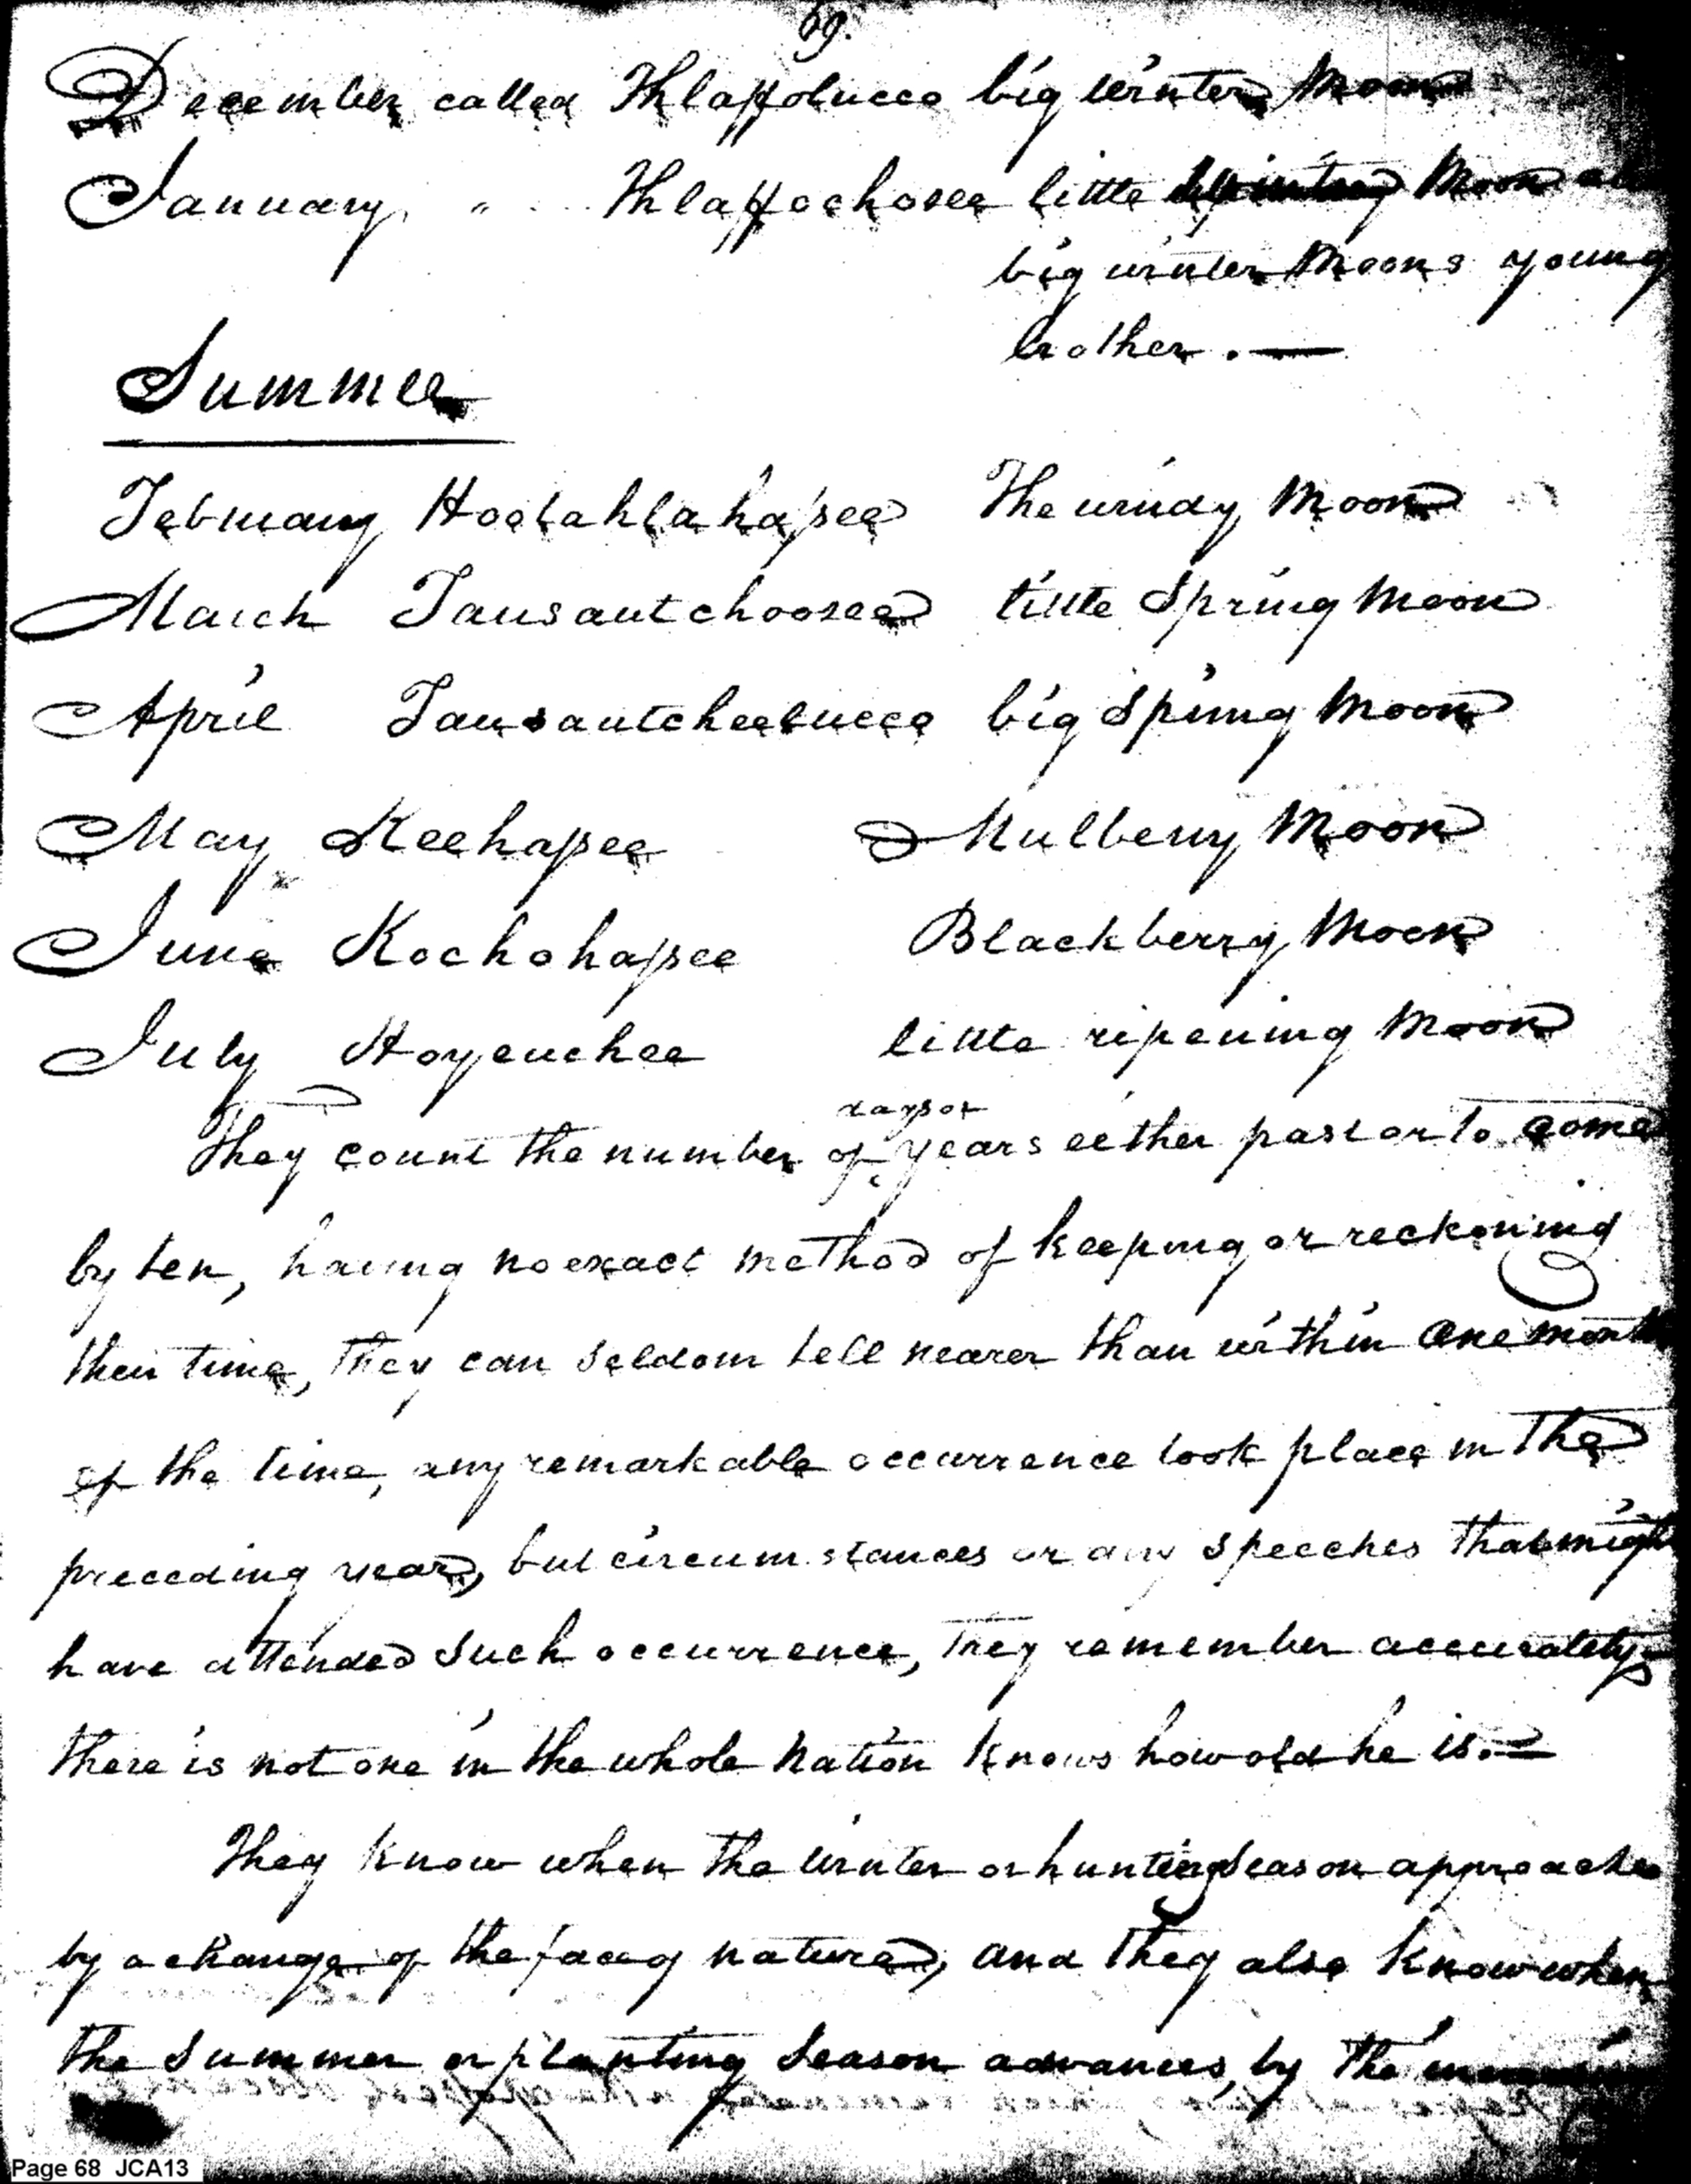 69.
December called Thlaffolucco big winter Moon
January " Thlaffochosee little winter Moon
big winter Moons young
brother. —
Summer
February Hootahlahassee The windy Moon
March Tausautchoosee little Spring Moon
April Tausautcheelucco big Spring Moon
May Keehassee Mulberry Moon
June Kochohassee Blackberry Moon
July Hoyeuchee little ripening Moon
days or
They count the number of years either past or to come
by ten, having no exact method of keeping or reckoning
their time, they can seldom tell nearer than within one month
of the time, any remarkable occurrence took place in the
preceding year, but circumstances or any speeches that might
have attended such occurrence, they remember accurately,
there is not one in the whole nation knows how old he is. —
They know when the winter or hunting season approaches
by a change of the face of nature, and they also know when
the summer or planting season advances, by the
Page 68 JCA13